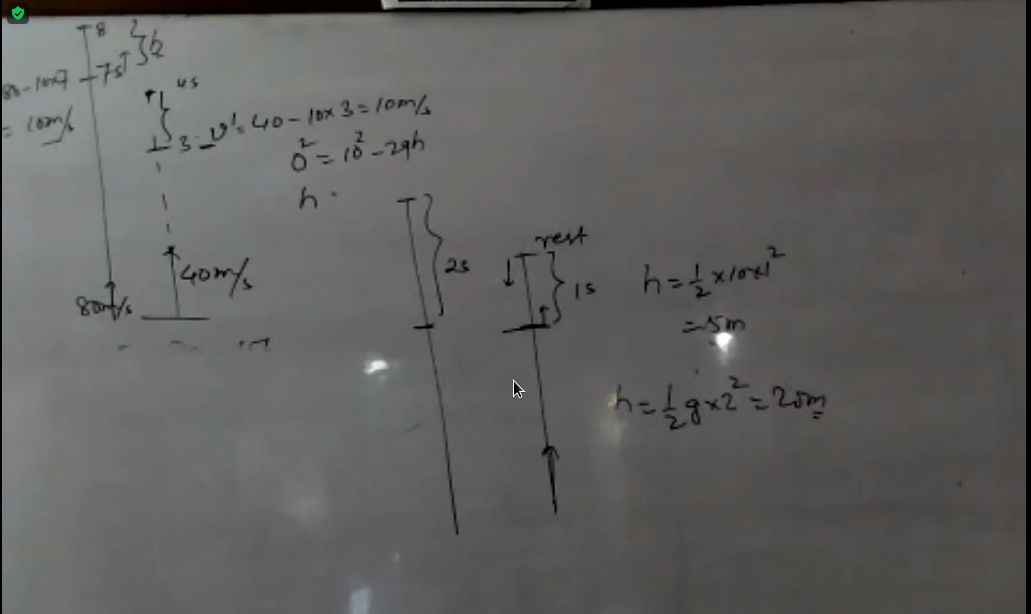 8
7s
h
80-10x7
= 10m/s
4s
3 - v' = 40 - 10x3 = 10m/s
0² = 10² - 2gh
h
40m/s
80m/s
2s
rest
1s
h = 1/2 x10x1²
= 5m
h = 1/2 gx2² = 20m